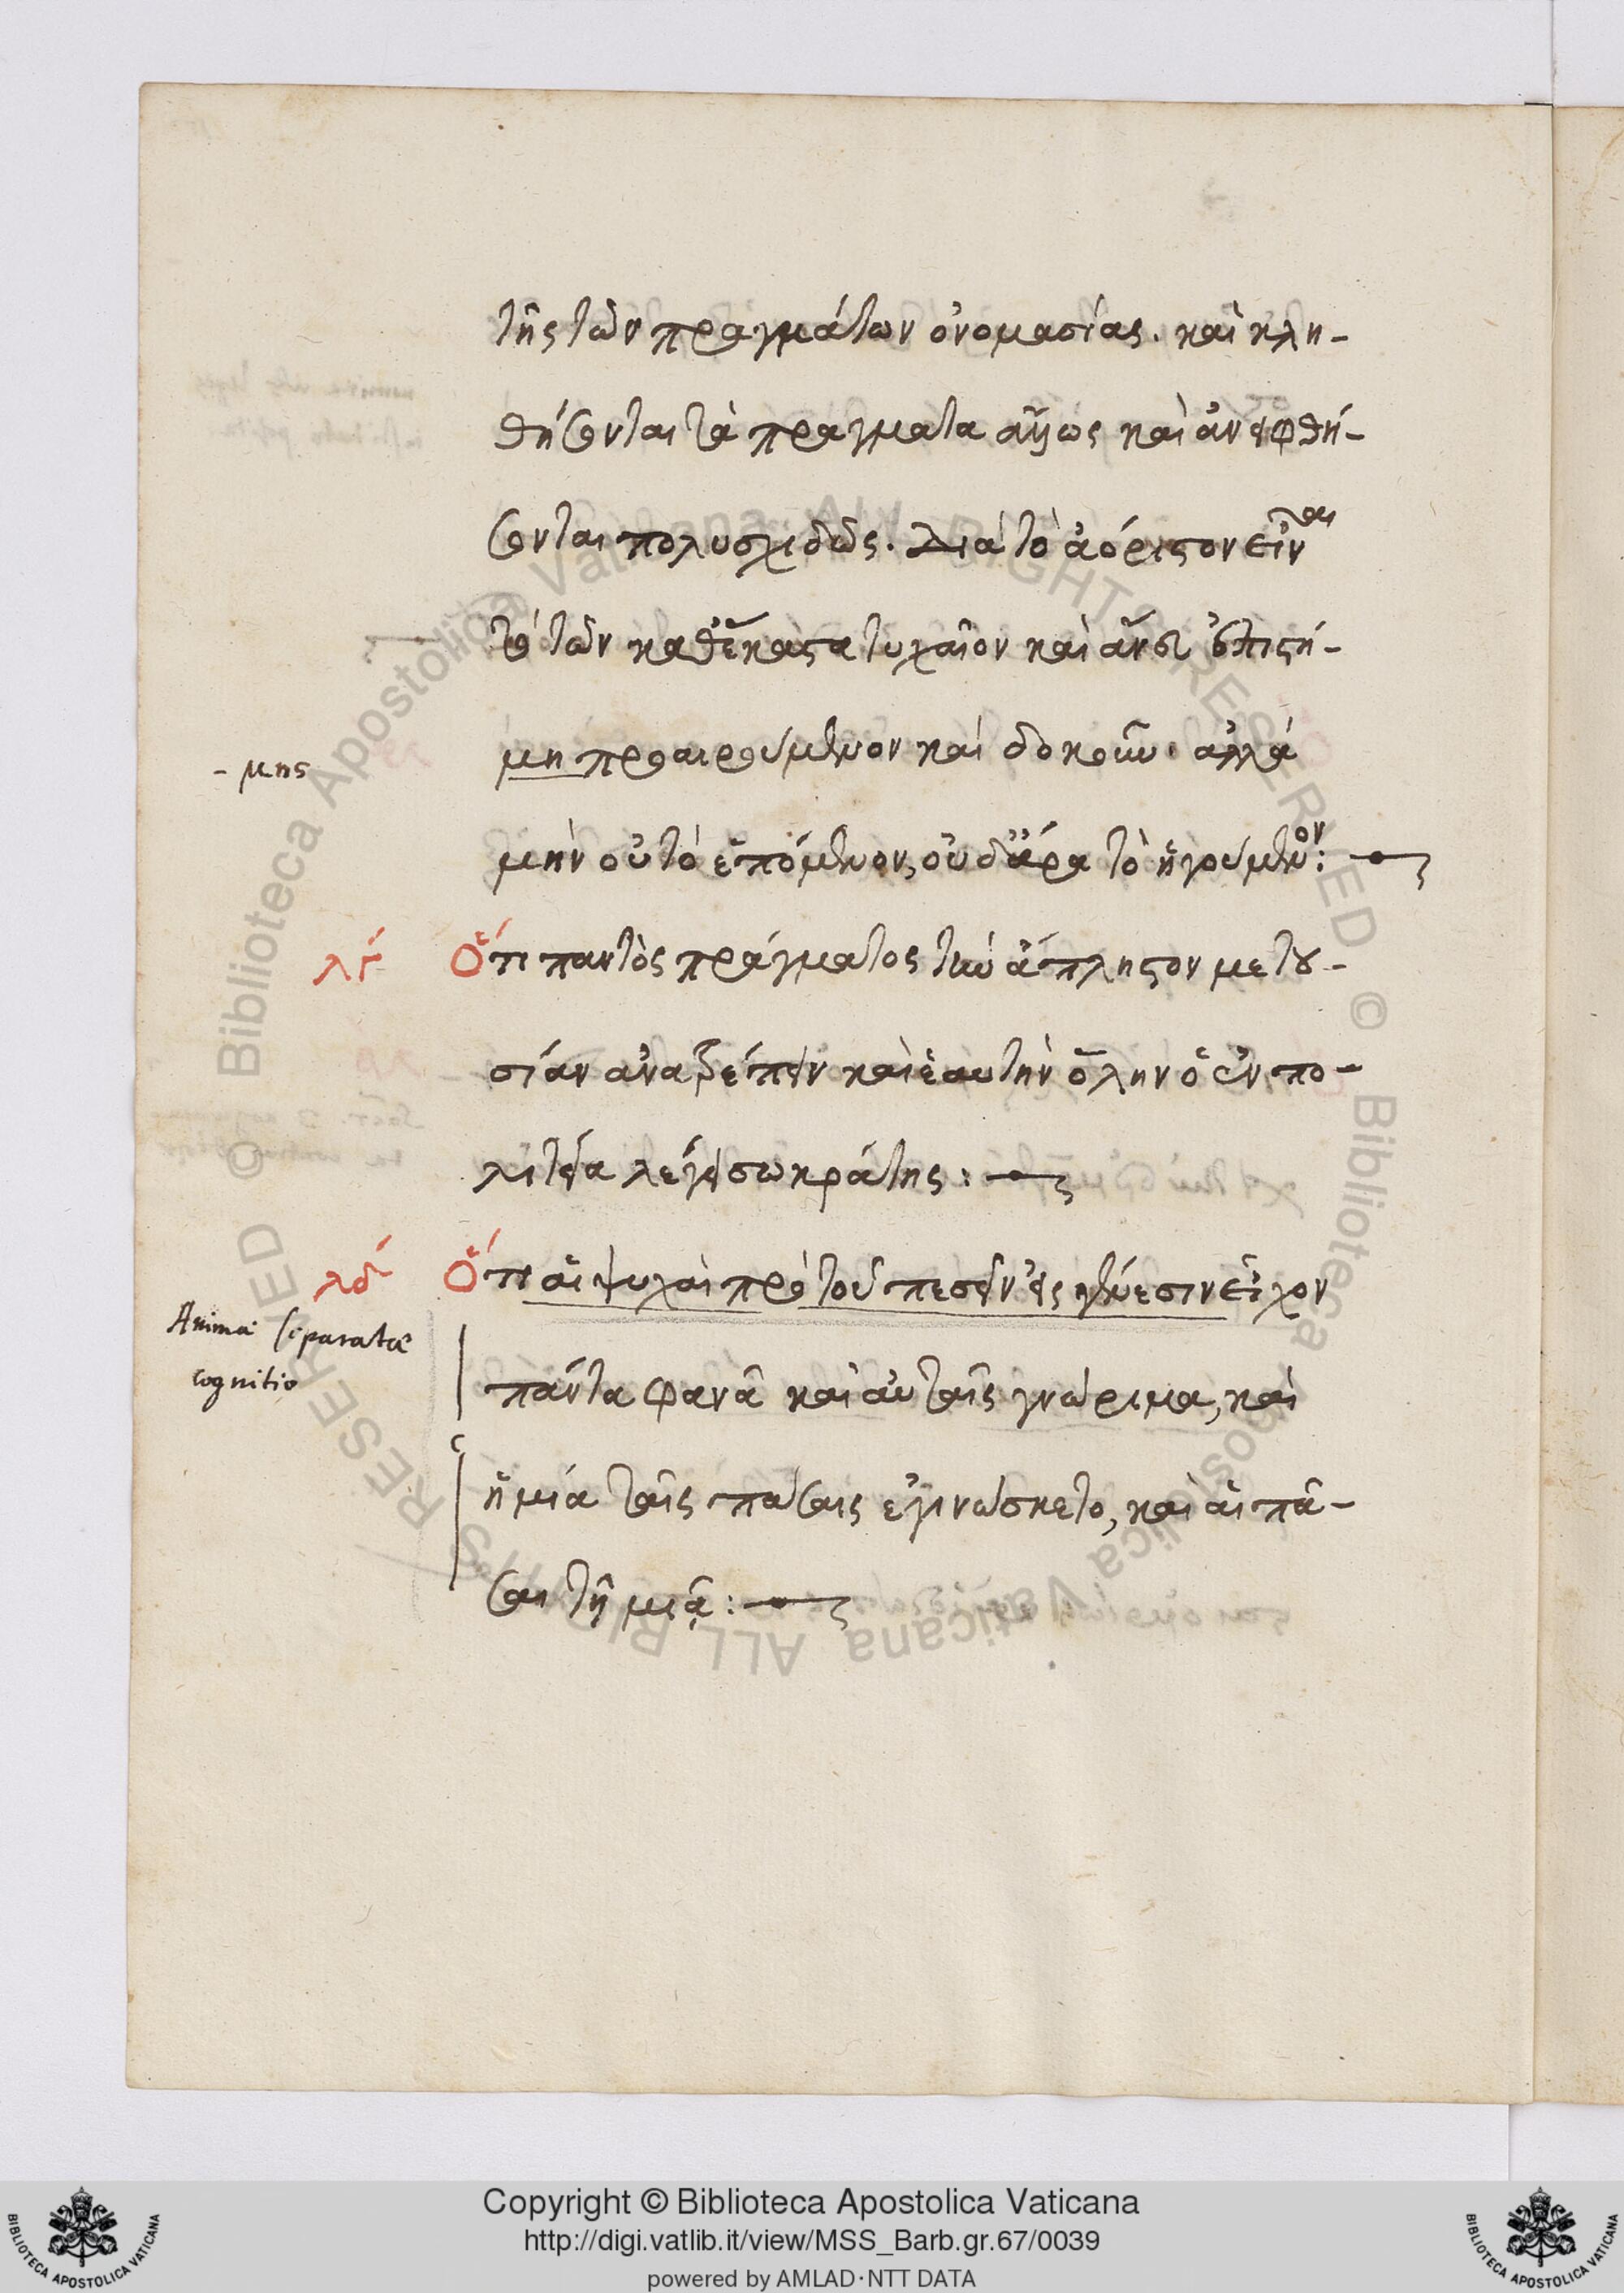 τῆς τῶν πραγμάτων ὀνομασίας. καὶ κλη-
θήσονται τὰ πράγματα ἄλλως καὶ ἀνειφθή-
σονται πολυσχιδῶς. Διὰ τὸ ἀόριστον εἶναι
τὸ τῶν καθέκαστα τυχαῖον καὶ ἄνευ ἐπιστή-
μη προαιρούμενον καὶ δοκοῦν. ἀλλὰ
- μης
μὴν οὐ τὸ ἑπόμενον, οὐδ' ἄρα τὸ ἡγούμενον:
λγ Ὅτι παντὸς πράγματος τὴν ἄπληστον μετου-
σίαν ἀνατρέπειν καὶ ἑαυτὴν ὅλην ὁ ἐν πο-
λιτεία λέγει σωκράτης:
λδ Ὅτι αἱ ψυχαὶ πρὸ τοῦ πεσεῖν εἰς γένεσιν εἶχον
Animae separatae
cognitio
πάντα φανὰ καὶ αὐταῖς γνώριμα, καὶ
ἡ μία ταῖς πάσαις ἐγινώσκετο, καὶ αἱ πᾶ-
σαι τῇ μιᾷ:
Copyright © Biblioteca Apostolica Vaticana
http://digi.vatlib.it/view/MSS_Barb.gr.67/0039
powered by AMLAD·NTT DATA
BIBLIOTECA APOSTOLICA VATICANA
BIBLIOTECA APOSTOLICA VATICANA